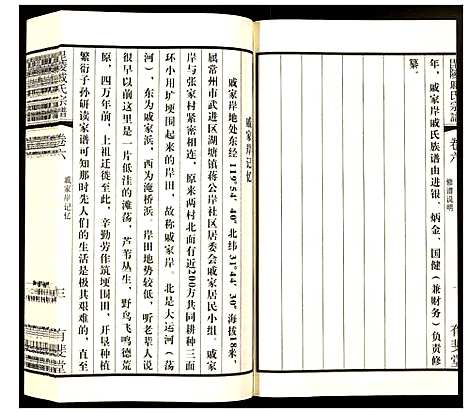 毘陵戚氏宗譜
卷六
修谱说明
年，戚家岸戚氏族谱由进银、炳金、国健（兼财务）负责修
纂。
一
有斐堂
戚家岸记忆
戚家岸地处东经119°54′40″，北纬31°44′30″，海拔18米，
属常州市武进区湖塘镇蒋公岸社区居委会戚家居民小组。戚家
岸与张家村紧密相连，原来两村北面有近200方共同耕种三面
环小用圹埂围起来的岸田，故称戚家岸。北是大运河（荡
河），东为戚家浜，西为淹桥浜。岸田地势较低，听老辈人说
很早以前这里是一片低洼的滩荡，芦苇丛生，野鸟飞鸣德荒
原，四万年前，上祖迁徙至此，辛勤劳作筑埂围田，开垦
繁衍子孙研读家谱可知那时先人们的生活是极其艰难的，直至
毘陵戚氏宗譜
卷六
戚家岸记忆
三
有斐堂